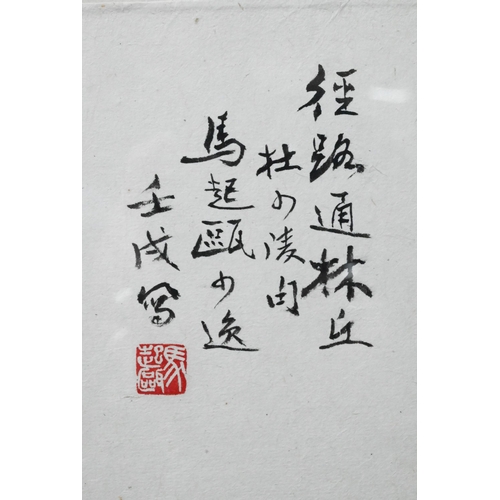 徑路通林丘
杜少陵句
馬起甌少逸
壬戌寫